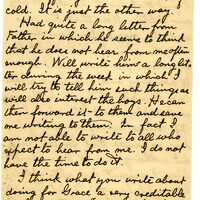 cold. It is just the other way.
Had quite a long letter from
Father in which he seems to think
that he does not hear from me often
enough. Will write him a long let
ter during the week in which I
will try to tell him such things as
will also interest the boys. He can
then forward it to them and save
me writing to them. In fact I
am not able to write to all who
expect to hear from me. I do not
have the time to do it.
I think what you write about
doing for Grace a very creditable